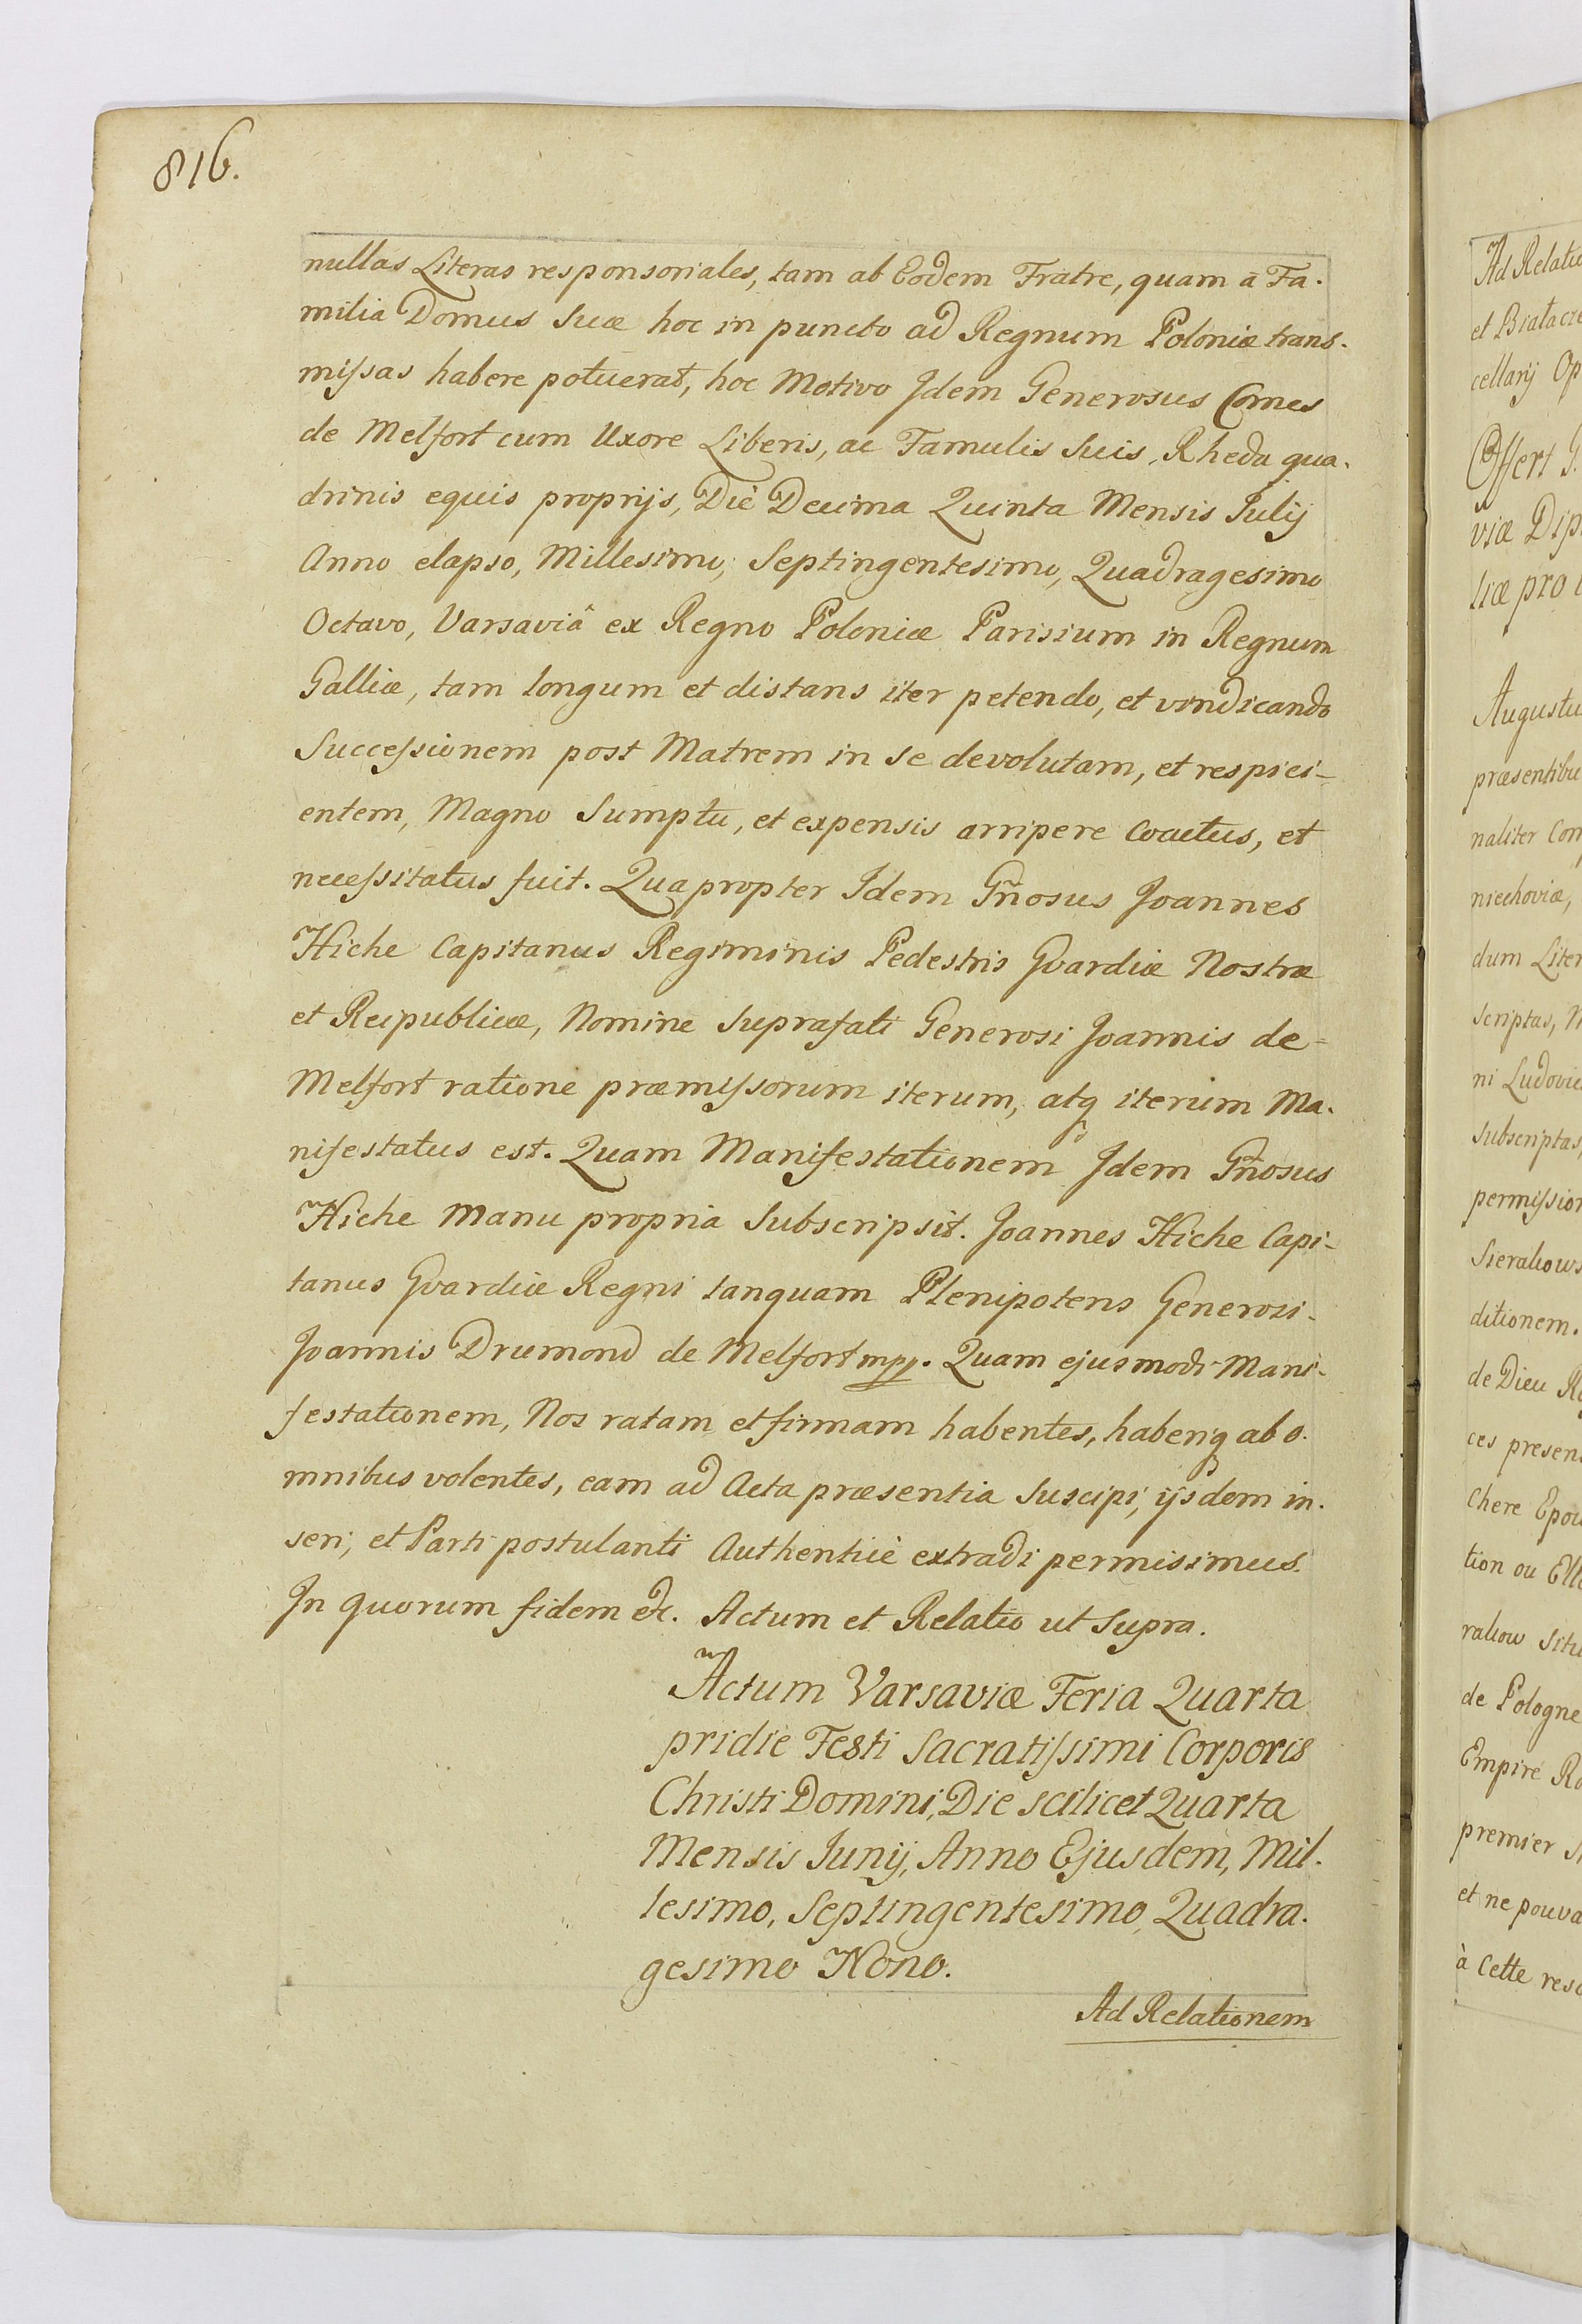 816.
nullas Literas responsoriales, tam ab Eodem Fratre, quam à Fa.
milia Domus Suæ hoc in puncto ad Regnum Poloniæ trans.
missas habere potuerat, hoc Motivo Idem Generosus Comes
de Melfort cum Uxore Liberis, ac Famulis Suis, Rheda qua.
drinis equis proprijs, Diè Decima Quinta Mensis Julij
Anno elapso, Millesimo, Septingentesimo, Quadragesimo
Octavo, Varsaviâ ex Regno Poloniæ Parisium in Regnum
Galliæ, tam longum et distans iter petendo, et vindicando
Successionem post Matrem in se devolutam, et respici-
entem, Magno Sumptu, et expensis arripere coactus, et
necessitatus fuit. Quapropter Idem Gñosus Joannes
Hiche Capitanus Regiminis Pedestris Gvardiæ Nostræ
et Reipublicæ, Nomine Suprafati Generosi Joannis de-
Melfort ratione præmissorum iterum, atq iterum Ma.
nifestatus est. Quam Manifestationem Idem Gñosus
Hiche Manu propria Subscripsit. Joannes Hiche Capi-
tanus Gvardiæ Regni tanquam Plenipotens Generosi-
Joannis Drumond de Melfort mpp. Quam ejusmodi Mani-
festationem, Nos ratam et firmam habentes, haberiq ab o.
mnibus volentes, eam ad Acta præsentia Suscipi, ijsdem in.
seri, et Parti postulanti Authenticè extradi permisimus.
In quorum fidem etc. Actum et Relatio ut Supra.
Actum Varsaviæ Feria Quarta
pridie Festi Sacratissimi Corporis
Christi Domini, Die scilicet Quarta
Mensis Junij, Anno Ejusdem, Mil.
lesimo, Septingentesimo, Quadra.
gesimo Nono.
Ad Relationem
Ad Relatio
et Bratacre
cellarij Op
Offert G.
viæ Dip
liæ pro
Augustu
præsentibu
naliter Com
niechoviæ,
dum Liter
scriptas, N
ni Ludovic
subscriptas,
permission
Sierakows
ditionem.
de Dieu R
ces presen
chere Epou
tion ou Elle
rakow Situ
de Pologne
Empire Ro
premier
et ne pouva
à Cette reso